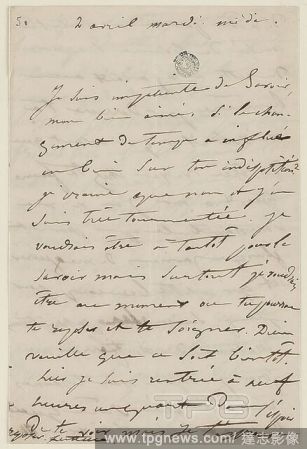 5.
2 avril mardi midi.
Je suis impatiente de savoir,
mon bien aimé, si le chan-
gement de temps a influé
en bien sur ton indisposition
je crains que non et j'en
suis très tourmentée. je
voudrais être à tantôt pour le
savoir mais surtout je voudrais
être au moment où tu pourras
te reposer et te soigner. Dieu
veuille que ce soit bientôt
hier je suis rentrée à neuf
heures un quart
De te voir mais
TPG
www.tpgnews.com 達志影像